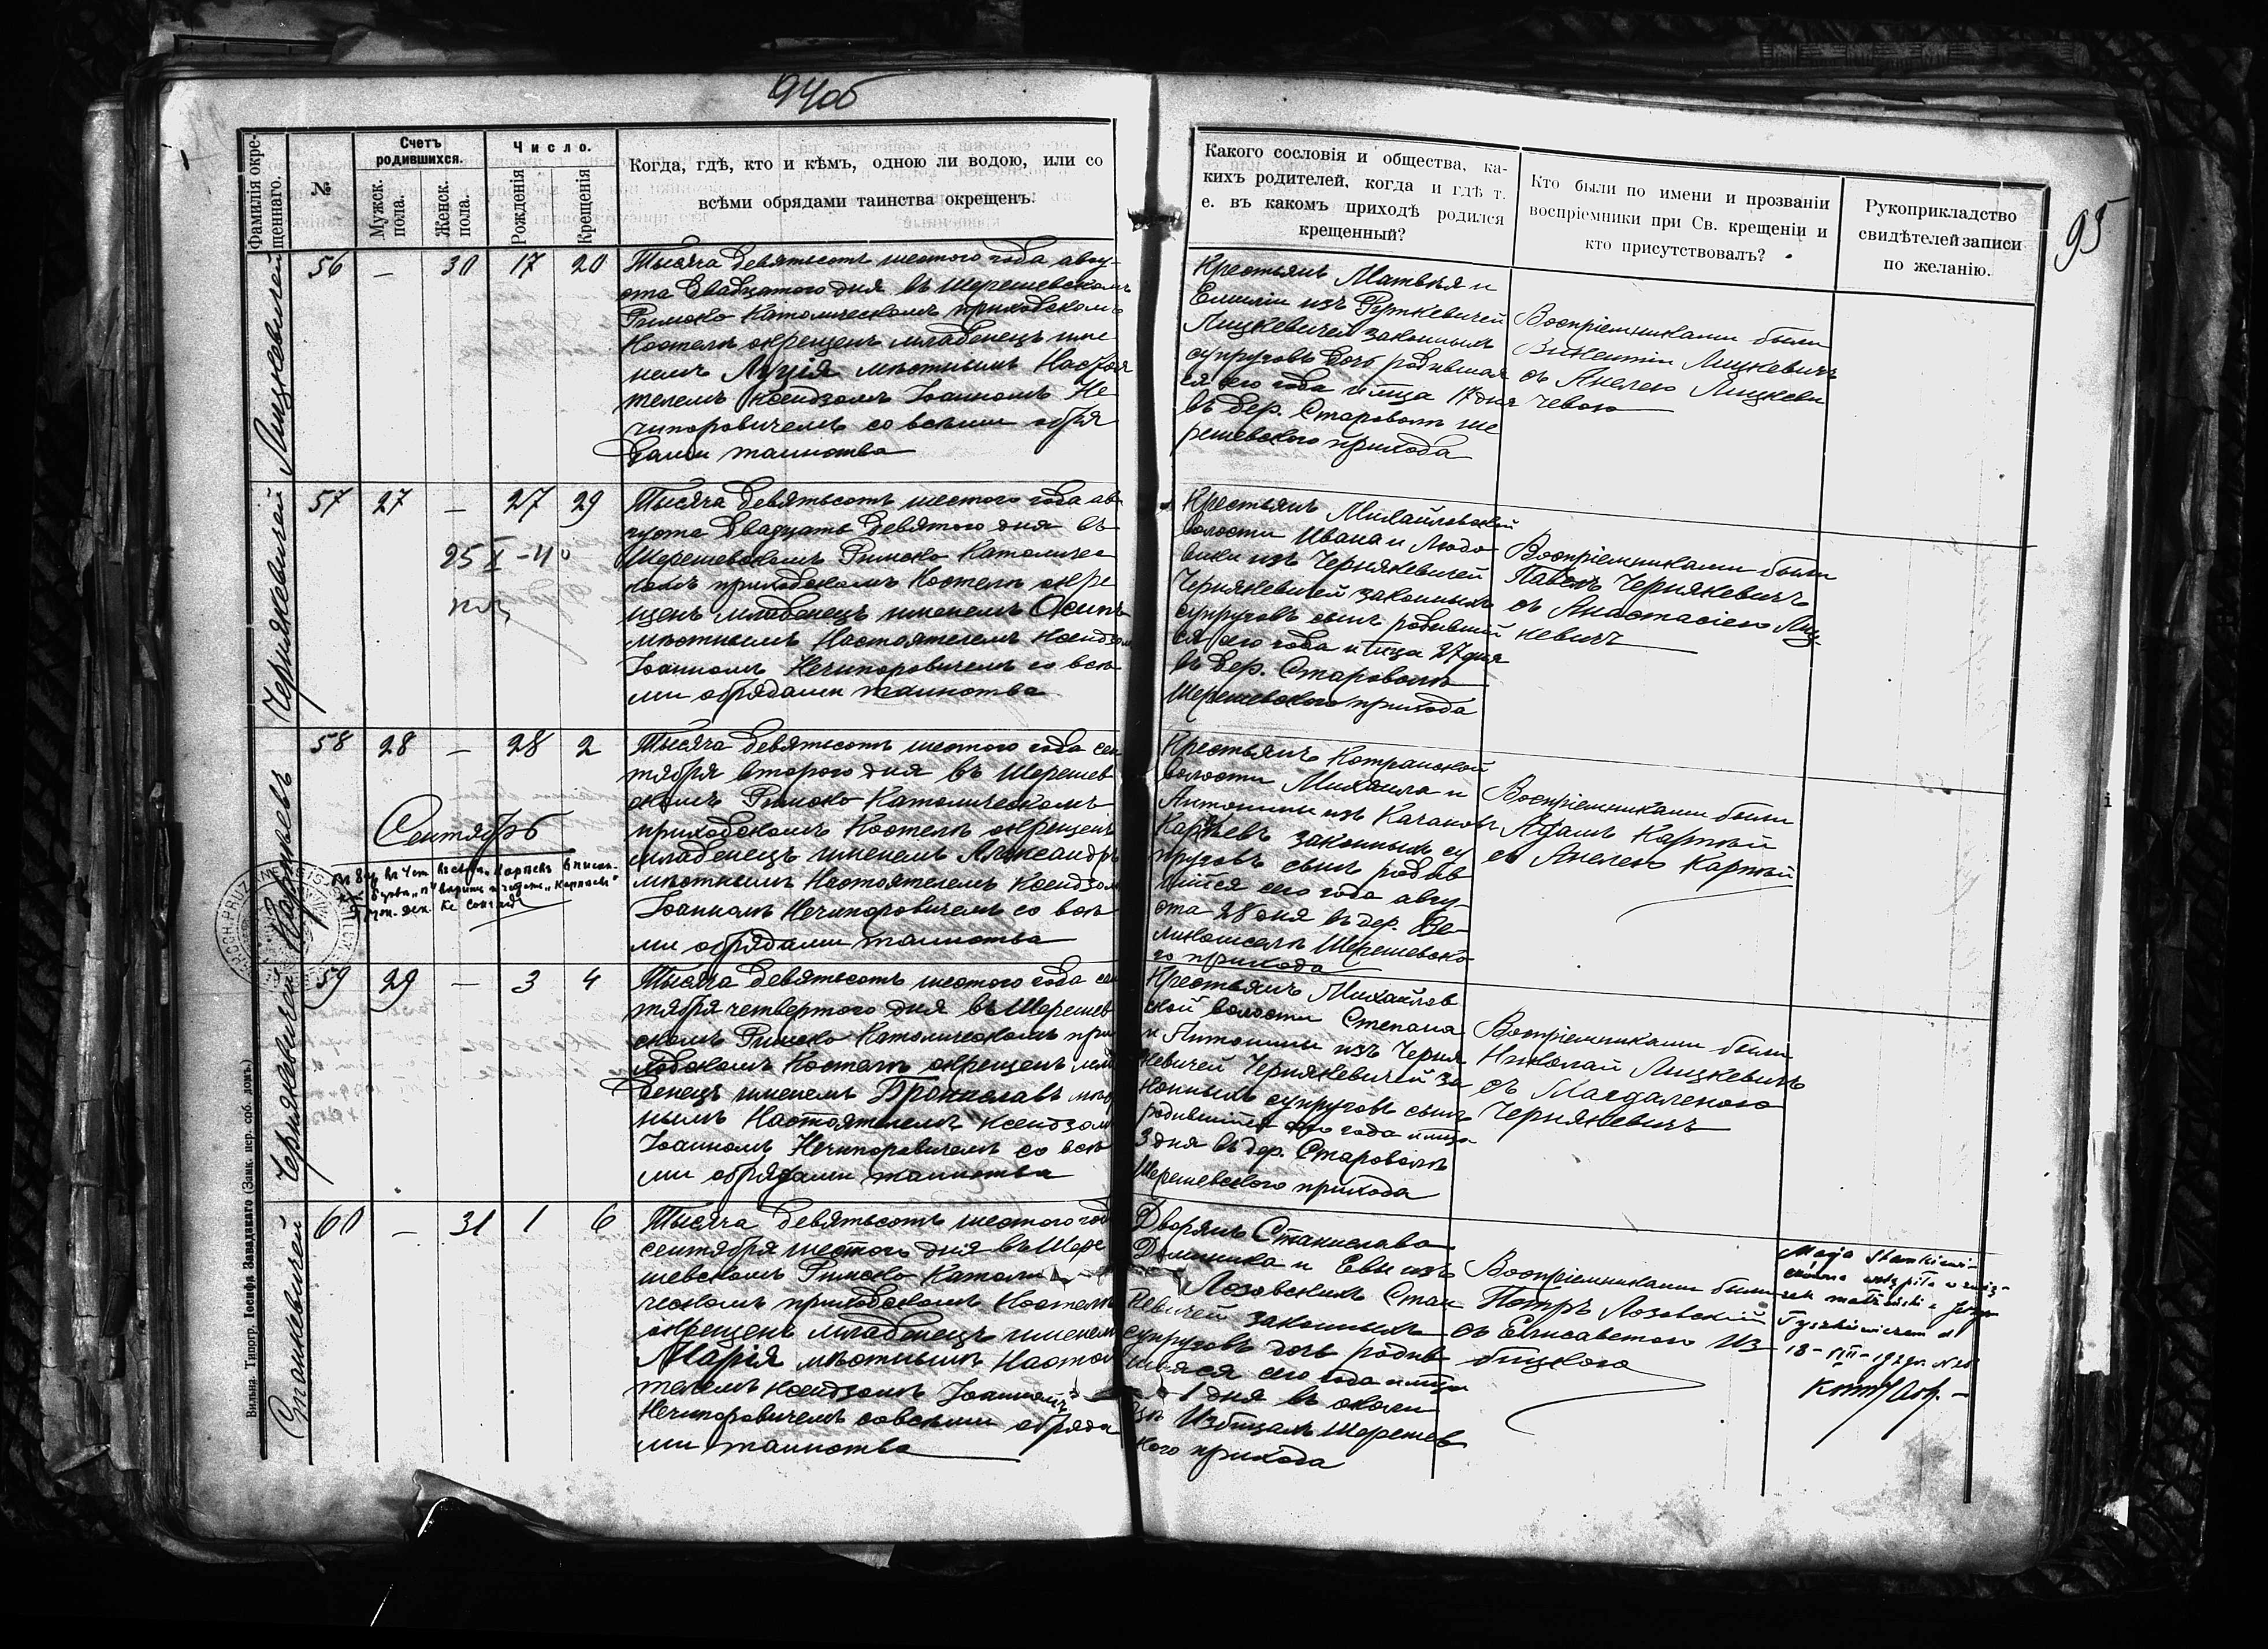 94об
95
Фамилія окре-
щеннаго.
№
Счетъ
родившихся.
Мужск.
пола.
Женск.
пола.
Число.
Рожденія
Крещенія
Когда, гдѣ, кто и кѣмъ, одною ли водою, или со
всѣми обрядами таинства окрещенъ.
Какого сословія и общества, ка-
кихъ родителей, когда и гдѣ т.
е. въ какомъ приходѣ родился
крещенный?
Кто были по имени и прозванію
воспріемники при Св. крещеніи и
кто присутствовалъ?
Рукоприкладство
свидѣтелей записи
по желанію.
Лицкевичей
56 — 30 17 20
Тысяча девятьсотъ шестого года авгу-
ста двадцатого дня въ Шерешевскомъ
Римско Католическомъ приходскомъ
Костелѣ окрещенъ младенецъ име
немъ Луція мѣстнымъ Настоя
телемъ Ксендзомъ Іоанномъ Не
чипоровичемъ со всѣми обря
дами таинства
Крестьянъ Матвѣя и
Емиліи изъ Руткевичей
Лицкевичей законныхъ
супруговъ дочь родившая
ся сего года и м-ца 17 дня
въ дер. Староволѣ Ше
решевского прихода
Воспріемниками были
Викентій Лицкевичъ
съ Анелею Лицкеви
чевою
Чернякевичей
57 27 — 27 29
25 X - 4
Тысяча девятьсотъ шестого года ав
густа двадцать девятого дня въ
Шерешевскомъ Римско Католичес
комъ приходскомъ Костелѣ окре
щенъ младенецъ именемъ Осипъ
мѣстнымъ Настоятелемъ Ксендзом
Іоанномъ Нечипоровичемъ со всѣ
ми обрядами таинства
Крестьянъ Михайловской
волости Ивана и Людо
вики изъ Чернякевичей
Чернякевичей законныхъ
супруговъ сынъ родивший
ся сего года и м-ца 27 дня
въ дер. Староволѣ
Шерешевского прихода
Воспріемниками были
Павелъ Чернякевичъ
съ Анастасіею Лиц
кевичъ
Карпьевъ
58 28 — 28 2
Сентябрь
Тысяча девятьсотъ шестого года сен
тября второго дня въ Шерешев
скомъ Римско Католическомъ
приходскомъ Костелѣ окрещенъ
младенецъ именемъ Александръ
мѣстнымъ Настоятелемъ Ксендзом
Іоанномъ Нечипоровичемъ со всѣ
ми обрядами таинства
Крестьянъ Котранской
волости Михаила и
Антонины изъ Качановъ
Карпьевъ законныхъ су
пруговъ сынъ родив
шійся сего года авгу
ста 28 дня въ дер. Ве
ликоселѣ Шерешевско
го прихода
Воспріемниками были
Адамъ Карпей
съ Анелею Карпей
Чернякевичей
59 29 — 3 4
Тысяча девятьсотъ шестого года сен
тября четвертого дня въ Шерешев
скомъ Римско Католическомъ при
ходскомъ Костелѣ окрещенъ мла
денецъ именемъ Брониславъ мѣст
нымъ Настоятелемъ Ксендзом
Іоанномъ Нечипоровичемъ со всѣ
ми обрядами таинства
Крестьянъ Михайлов
ской волости Степана
и Антонины изъ Черня
кевичей Чернякевичей за
конныхъ супруговъ сынъ
родившійся сего года и м-ца
3 дня въ дер. Староволѣ
Шерешевского прихода
Воспріемниками были
Николай Лицкевичъ
съ Магдаленою
Чернякевичъ
Станкевичей
60 — 31 1 6
Тысяча девятьсотъ шестого год
сентября шестого дня въ Шере
шевскомъ Римско Католи
ческомъ приходскомъ Костелѣ
окрещенъ младенецъ именем
Марія мѣстнымъ Настоя
телемъ Ксендзомъ Іоанномъ
Нечипоровичемъ со всѣми обряда
ми таинства
Дворянъ Станислава
Доминика и Евы изъ
Лозовскихъ Стан
кевичей законныхъ
супруговъ дочь родив
шаяся сего года и м-ца
1 дня въ околи
цѣ Избицахъ Шерешев
кого прихода
Воспріемниками были
Петръ Лозовский
съ Елисаветою Из
бицкою
Marja Stankiewi-
czówna wstąpiła w zwią-
zek małżeński z
Tyszkiewiczem d.
18-
Вильна Типогр. Іосифа Завадзкаго (Замк. пер. соб. домъ.)